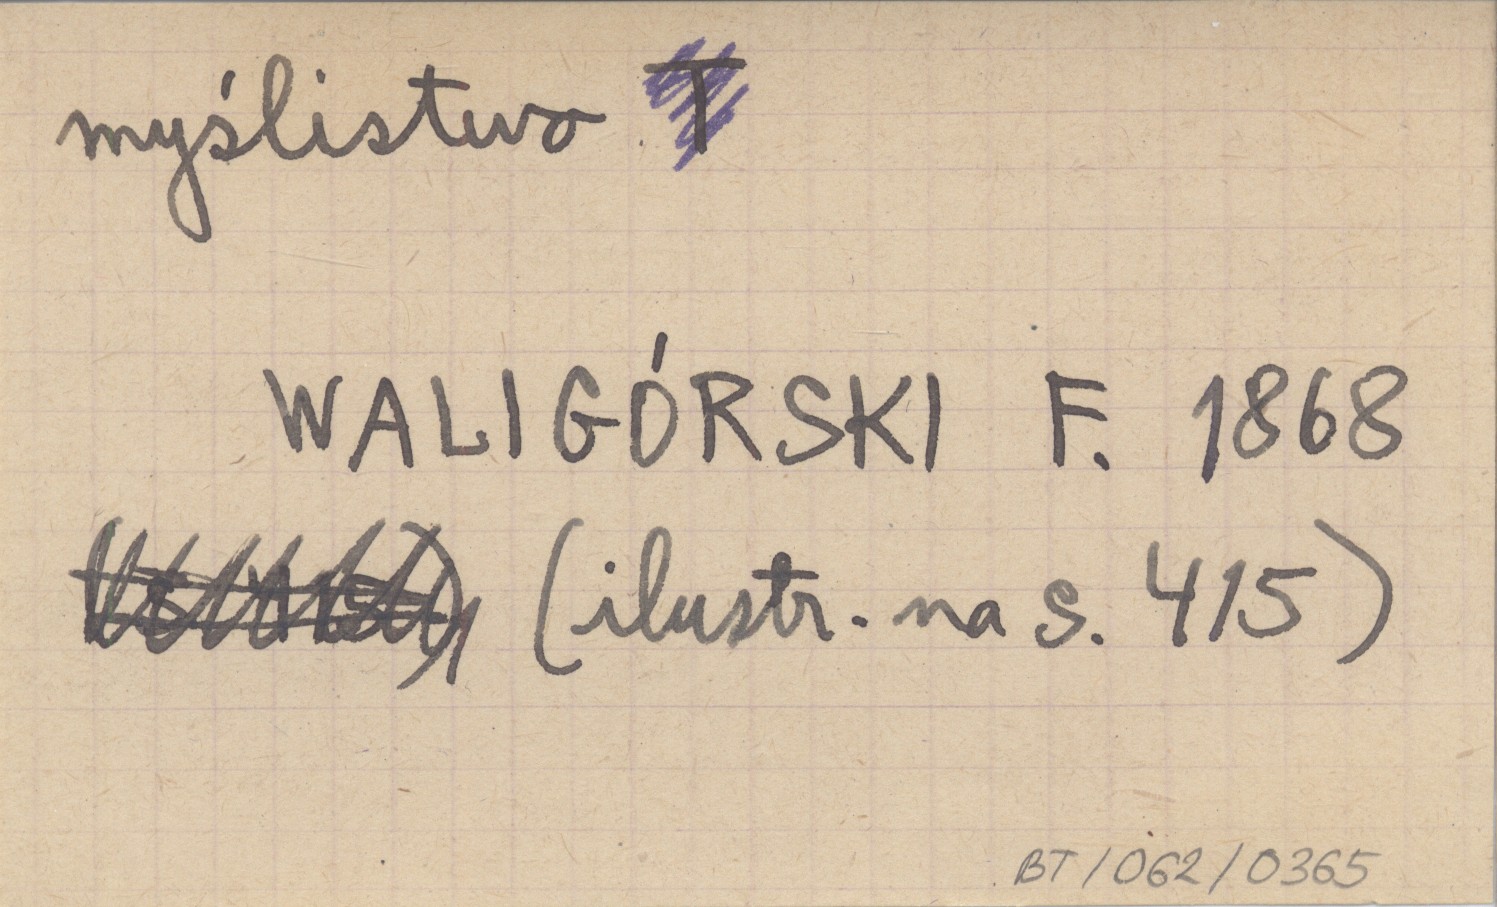 myślistwo T
WALIGÓRSKI F. 1868
(ilustr. na s. 415)
BT/062/0365